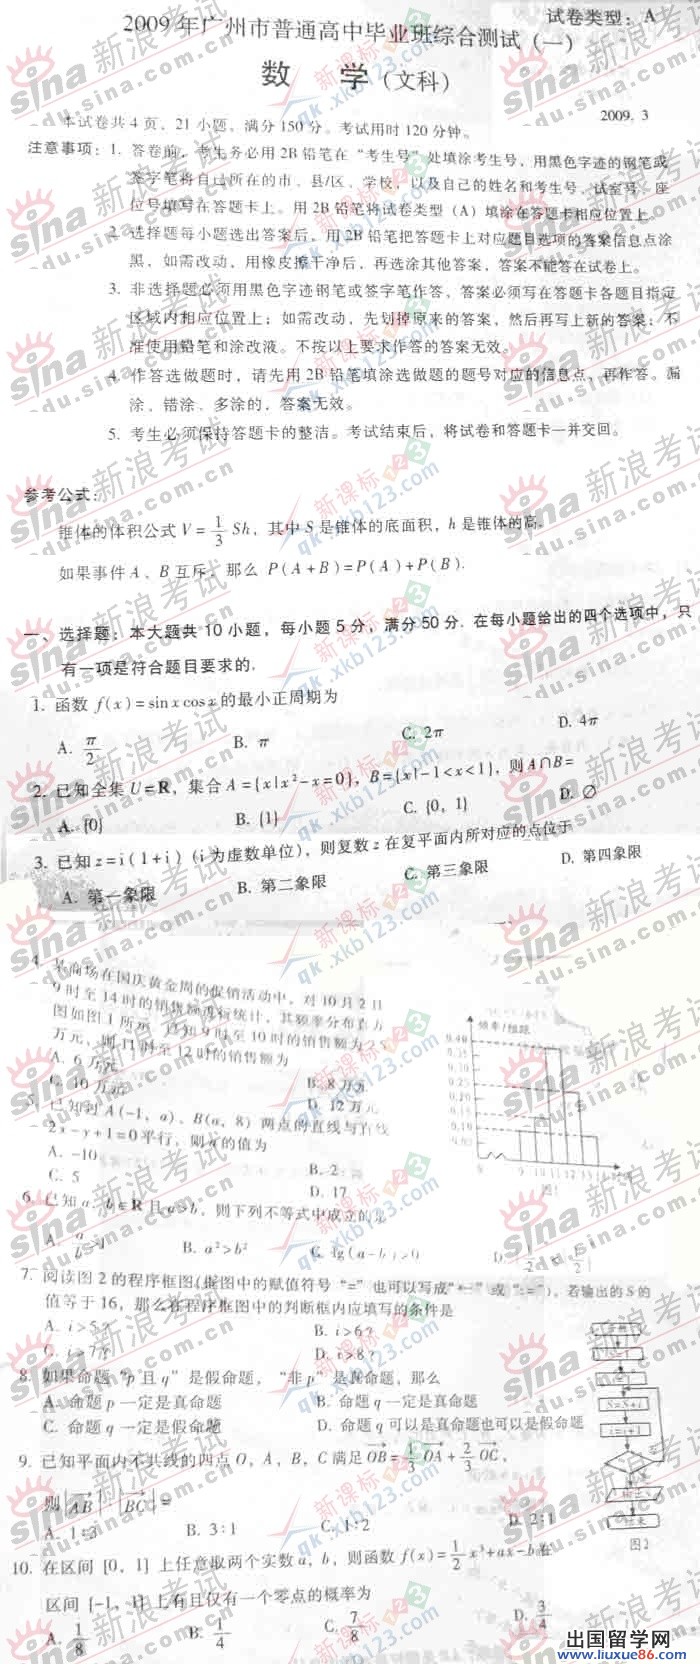 试卷类型：A
2009年广州市普通高中毕业班综合测试（一）
数 学（文科）
2009. 3
本试卷共4页，21小题，满分150分。考试用时120分钟。
注意事项：1. 答卷前，考生务必用2B铅笔在“考生号”处填涂考生号，用黑色字迹的钢笔或
签字笔将自己所在的市、县/区、学校，以及自己的姓名和考生号、试室号、座
位号填写在答题卡上。用2B铅笔将试卷类型（A）填涂在答题卡相应位置上。
2. 选择题每小题选出答案后，用2B铅笔把答题卡上对应题目选项的答案信息点涂
黑，如需改动，用橡皮擦干净后，再选涂其他答案，答案不能答在试卷上。
3. 非选择题必须用黑色字迹钢笔或签字笔作答，答案必须写在答题卡各题目指定
区域内相应位置上；如需改动，先划掉原来的答案，然后再写上新的答案；不
准使用铅笔和涂改液。不按以上要求作答的答案无效。
4. 作答选做题时，请先用2B铅笔填涂选做题的题号对应的信息点，再作答。漏
涂、错涂、多涂的，答案无效。
5. 考生必须保持答题卡的整洁。考试结束后，将试卷和答题卡一并交回。
参考公式：
锥体的体积公式 V = 1/3 Sh，其中 S 是锥体的底面积，h 是锥体的高.
如果事件 A、B 互斥，那么 P(A+B)=P(A)+P(B).
一、选择题：本大题共10小题，每小题5分，满分50分. 在每小题给出的四个选项中，只
有一项是符合题目要求的.
1. 函数 f(x)=sinxcosx 的最小正周期为
A. π/2 B. π C. 2π D. 4π
2. 已知全集 U=R，集合 A={x|x²-x=0}，B={x|-1<x<1}，则 A∩B=
A. {0} B. {1} C. {0, 1} D. ∅
3. 已知 z=i(1+i)（i为虚数单位），则复数 z 在复平面内所对应的点位于
A. 第一象限 B. 第二象限 C. 第三象限 D. 第四象限
4. 某商场在国庆黄金周的促销活动中，对10月2日
9时至14时的销售额进行统计，其频率分布直方
图如图1所示. 已知9时至10时的销售额为2.5
万元，则11时至12时的销售额为
A. 6万元 B. 8万元
C. 10万元 D. 12万元
频率/组距
0.40
0.35
0.30
0.25
0.20
0.15
0.10
0.05
图1
5. 已知过 A(-1, a)、B(a, 8) 两点的直线与直线
2x-y+1=0 平行，则 a 的值为
A. -10 B. 2
C. 5 D. 17
6. 已知 a、b∈R 且 a>b，则下列不等式中成立的是
A. a/b>1 B. a²>b² C. lg(a-b)>0
7. 阅读图2的程序框图（框图中的赋值符号“=”也可以写成“←”或“:=”），若输出的 S 的
值等于16，那么在程序框图中的判断框内应填写的条件是
A. i>5? B. i>6?
C. i>7? D. i>8?
8. 如果命题“p 且 q”是假命题，“非 p”是真命题，那么
A. 命题 p 一定是真命题 B. 命题 q 一定是真命题
C. 命题 q 一定是假命题 D. 命题 q 可以是真命题也可以是假命题
S=S+i
i=i+1
结束
图2
9. 已知平面内不共线的四点 O，A，B，C 满足 OB = 1/3 OA + 2/3 OC，
则|AB|:|BC|=
A. 1:3 B. 3:1 C. 1:2 D. 2:1
10. 在区间 [0, 1] 上任意取两个实数 a，b，则函数 f(x)=1/2 x³+ax-b 在
区间 [-1, 1] 上有且仅有一个零点的概率为
A. 1/8 B. 1/4 C. 7/8 D. 3/4
出国留学网
www.liuxue86.com